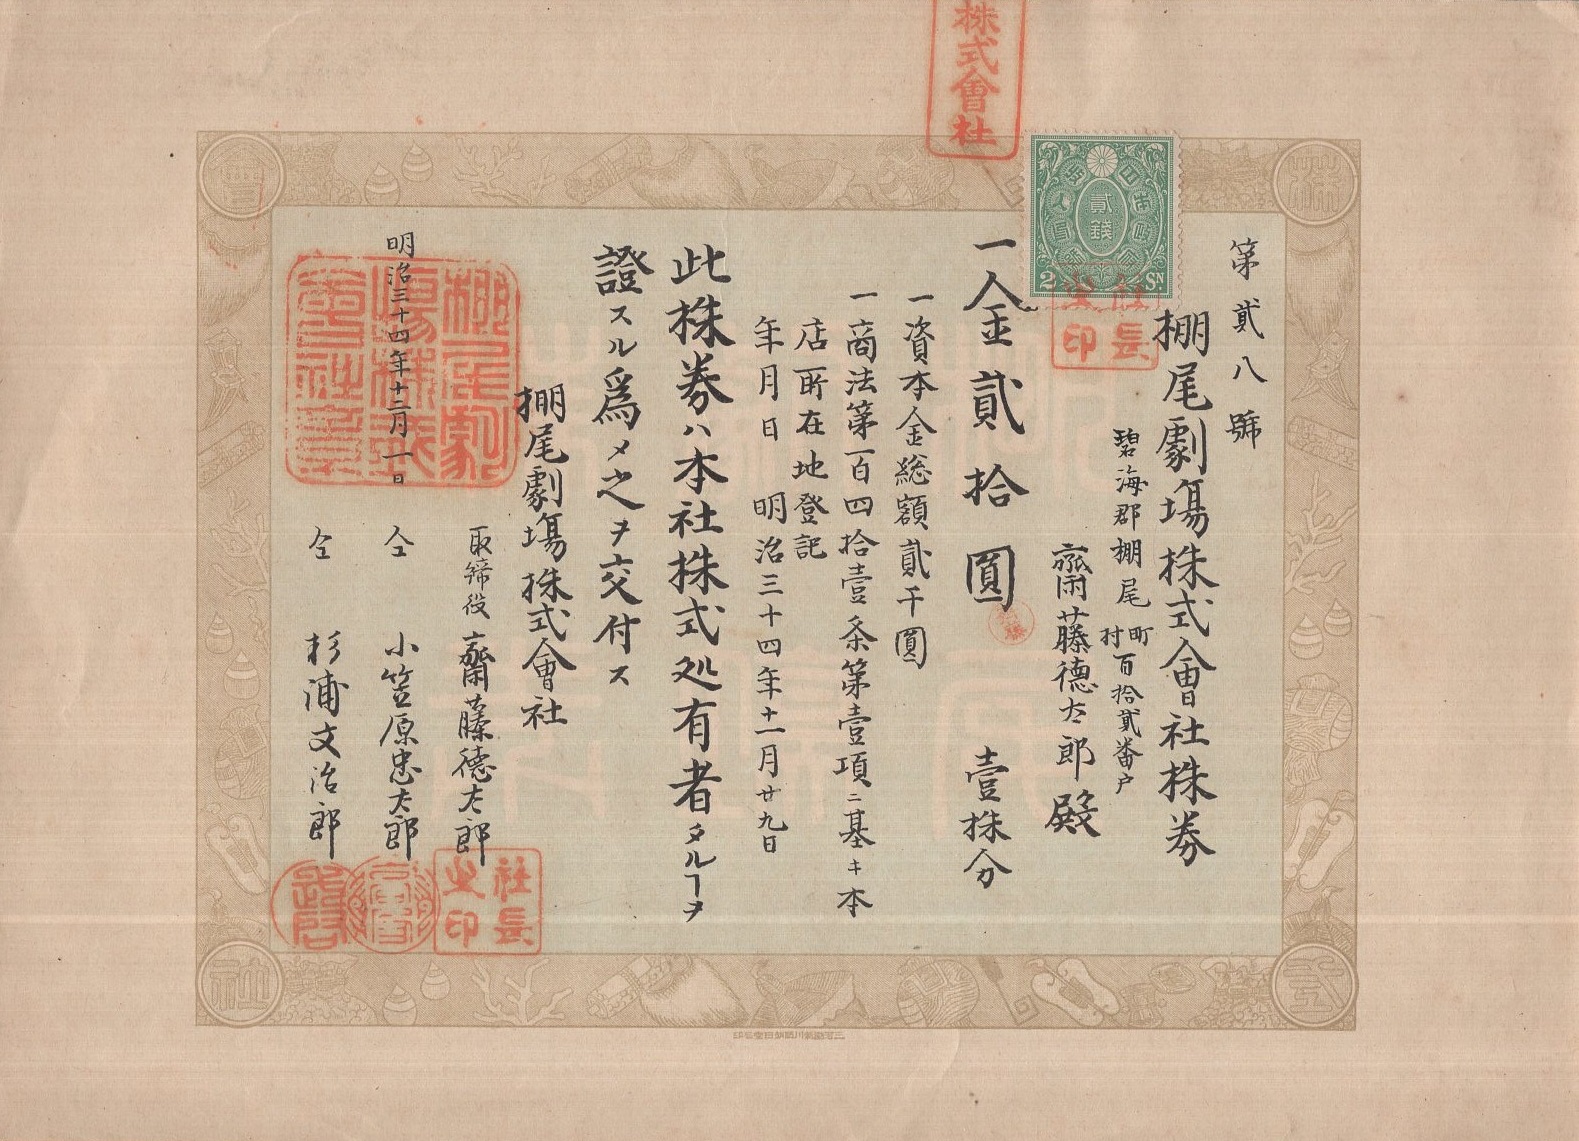 第貳八號
棚尾劇場株式會社株券
碧海郡棚尾町村百拾貳番戸
齋藤德太郎殿
一金貳拾圓 壹株分
一資本金総額貳千圓
一商法第一百四拾壹条第壹項ニ基キ本
店所在地登記
年月日 明治三十四年十一月廿九日
此株券ハ本社株式処有者タルヿヲ
證スル爲メ之ヲ交付ス
棚尾劇場株式會社
明治三十四年十二月一日
取締役 齋藤德太郎
仝 小笠原忠太郎
仝 杉浦文治郎
株式會社
貳錢
2 SN
社長之印
棚尾劇場株式會社章
社長之印
株式會社